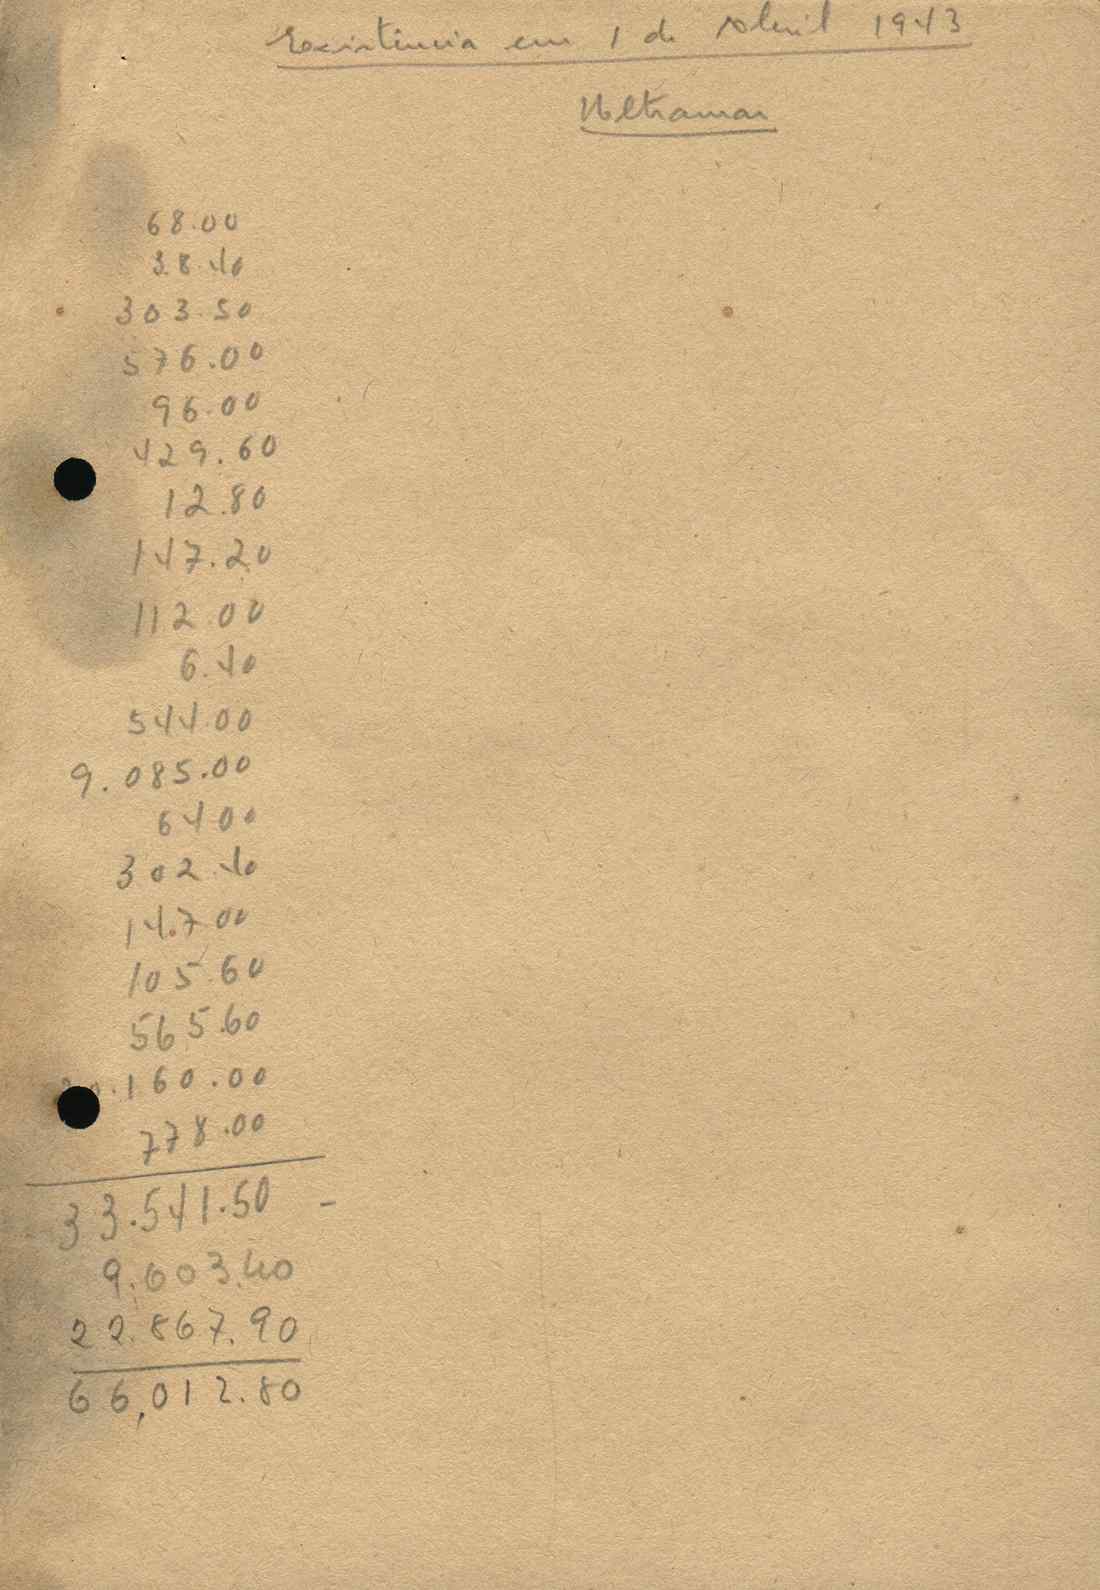 Existência em 1 de Abril 1943
Ultramar
68.00
38.40
303.50
576.00
96.00
429.60
12.80
147.20
112 00
6.40
544.00
9.085.00
64 00
302.40
147 00
105.60
565.60
20.160.00
778.00
33.541.50 -
9.603.40
22.867.90
66,012.80